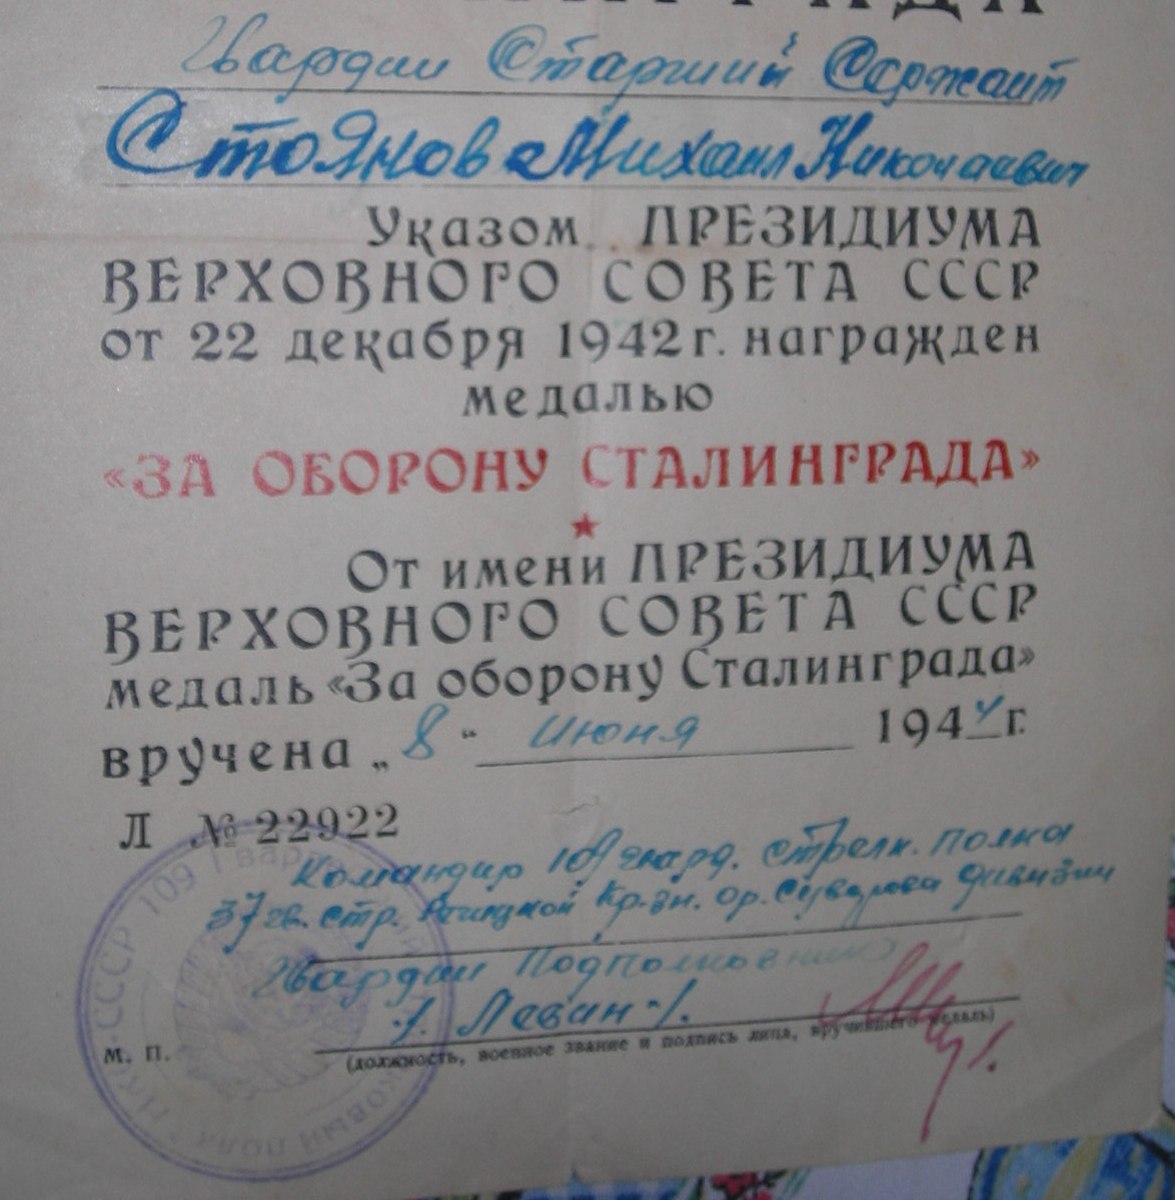 Гвардии Старший Сержант
Стоянов Михаил Николаевич
Указом ПРЕЗИДИУМА
ВЕРХОВНОГО СОВЕТА СССР
от 22 декабря 1942 г. награжден
медалью
«ЗА ОБОРОНУ СТАЛИНГРАДА»
От имени ПРЕЗИДИУМА
ВЕРХОВНОГО СОВЕТА СССР
медаль «За оборону Сталинграда»
вручена „8“ июня 1944 г.
Л № 22922
Командир 109 гвард. стрелк. полка
37 гв. стр. Речицкой Кр-зн. ор. Суворова дивизии
Гвардии Подполковник
/ Левин /
М. П.
(должность, военное звание и подпись лица, вручившего медаль)
НКО СССР 109 Гвардейский полк